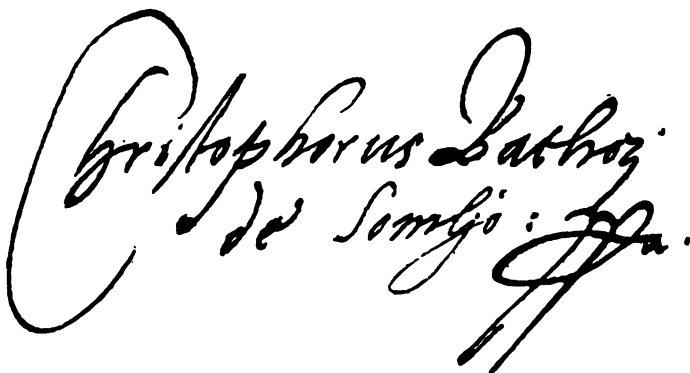 Christophorus Bathorj
de Somljo : mppa.